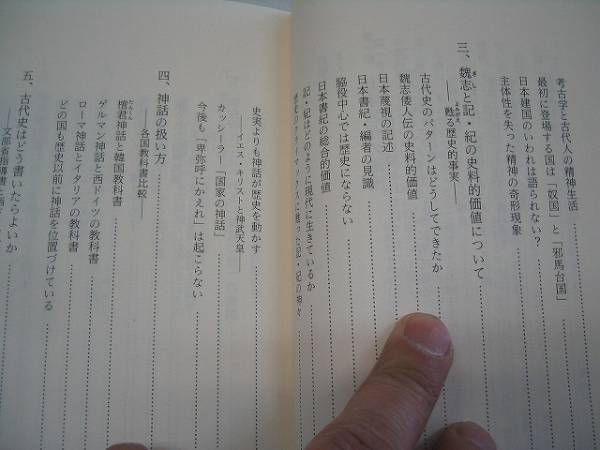 考古学と古代人の精神生活
最初に登場する国は「奴国」と「邪馬台国」
日本建国のいわれは語られない?
主体性を失った精神の奇形現象
三、魏志と記・紀の史料的価値について
――甦る歴史的事実――
古代史のパターンはどうしてできたか
魏志倭人伝の史料的価値
日本蔑視の記述
日本書紀・編者の見識
脇役中心では歴史にならない
日本書紀の総合的価値
記・紀はどのように現代に生きているか
に甦った記・紀の神々
史実よりも神話が歴史を動かす
――イエス・キリストと神武天皇――
カッシーラー「国家の神話」
今後も「卑弥呼にかえれ」は起こらない
四、神話の扱い方
――各国教科書比較――
檀君神話と韓国教科書
ゲルマン神話と西ドイツの教科書
ローマ神話とイタリアの教科書
どの国も歴史以前に神話を位置づけている
五、古代史はどう書いたらよいか
――文部省指導書